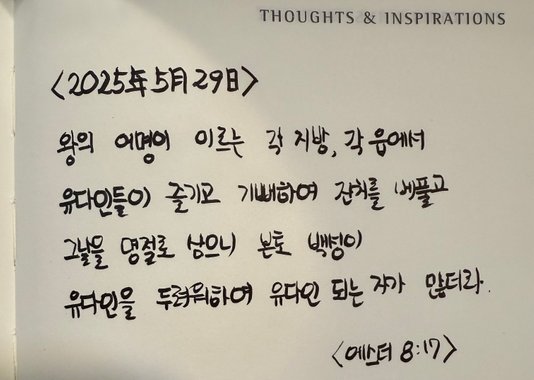 THOUGHTS & INSPIRATIONS
<2025年 5月 29日>
왕의 어명이 이르는 각 지방, 각 읍에서
유다인들이 즐기고 기뻐하여 잔치를 베풀고
그날을 명절로 삼으니 본토 백성이
유다인을 두려워하여 유다인 되는 자가 많더라.
<에스더 8:17>